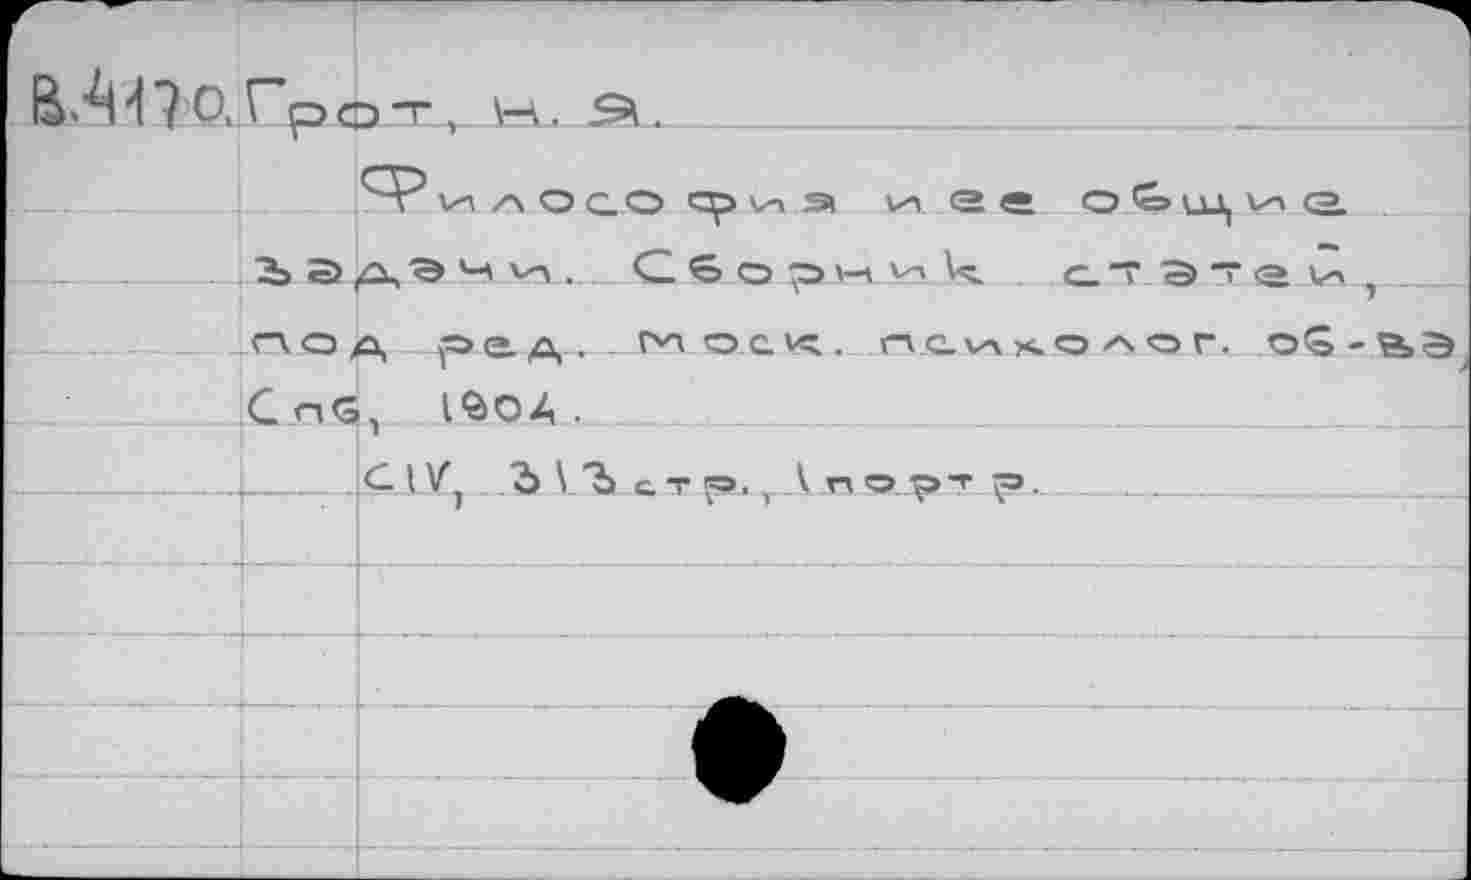 В.4170. Грот, Н. Я.
Философия и ее общие
задачи. Сборник статей,
под ред. моск. психолог. об-ва,
Спб, 1904.
CIV, 313 стр., 1 портр.